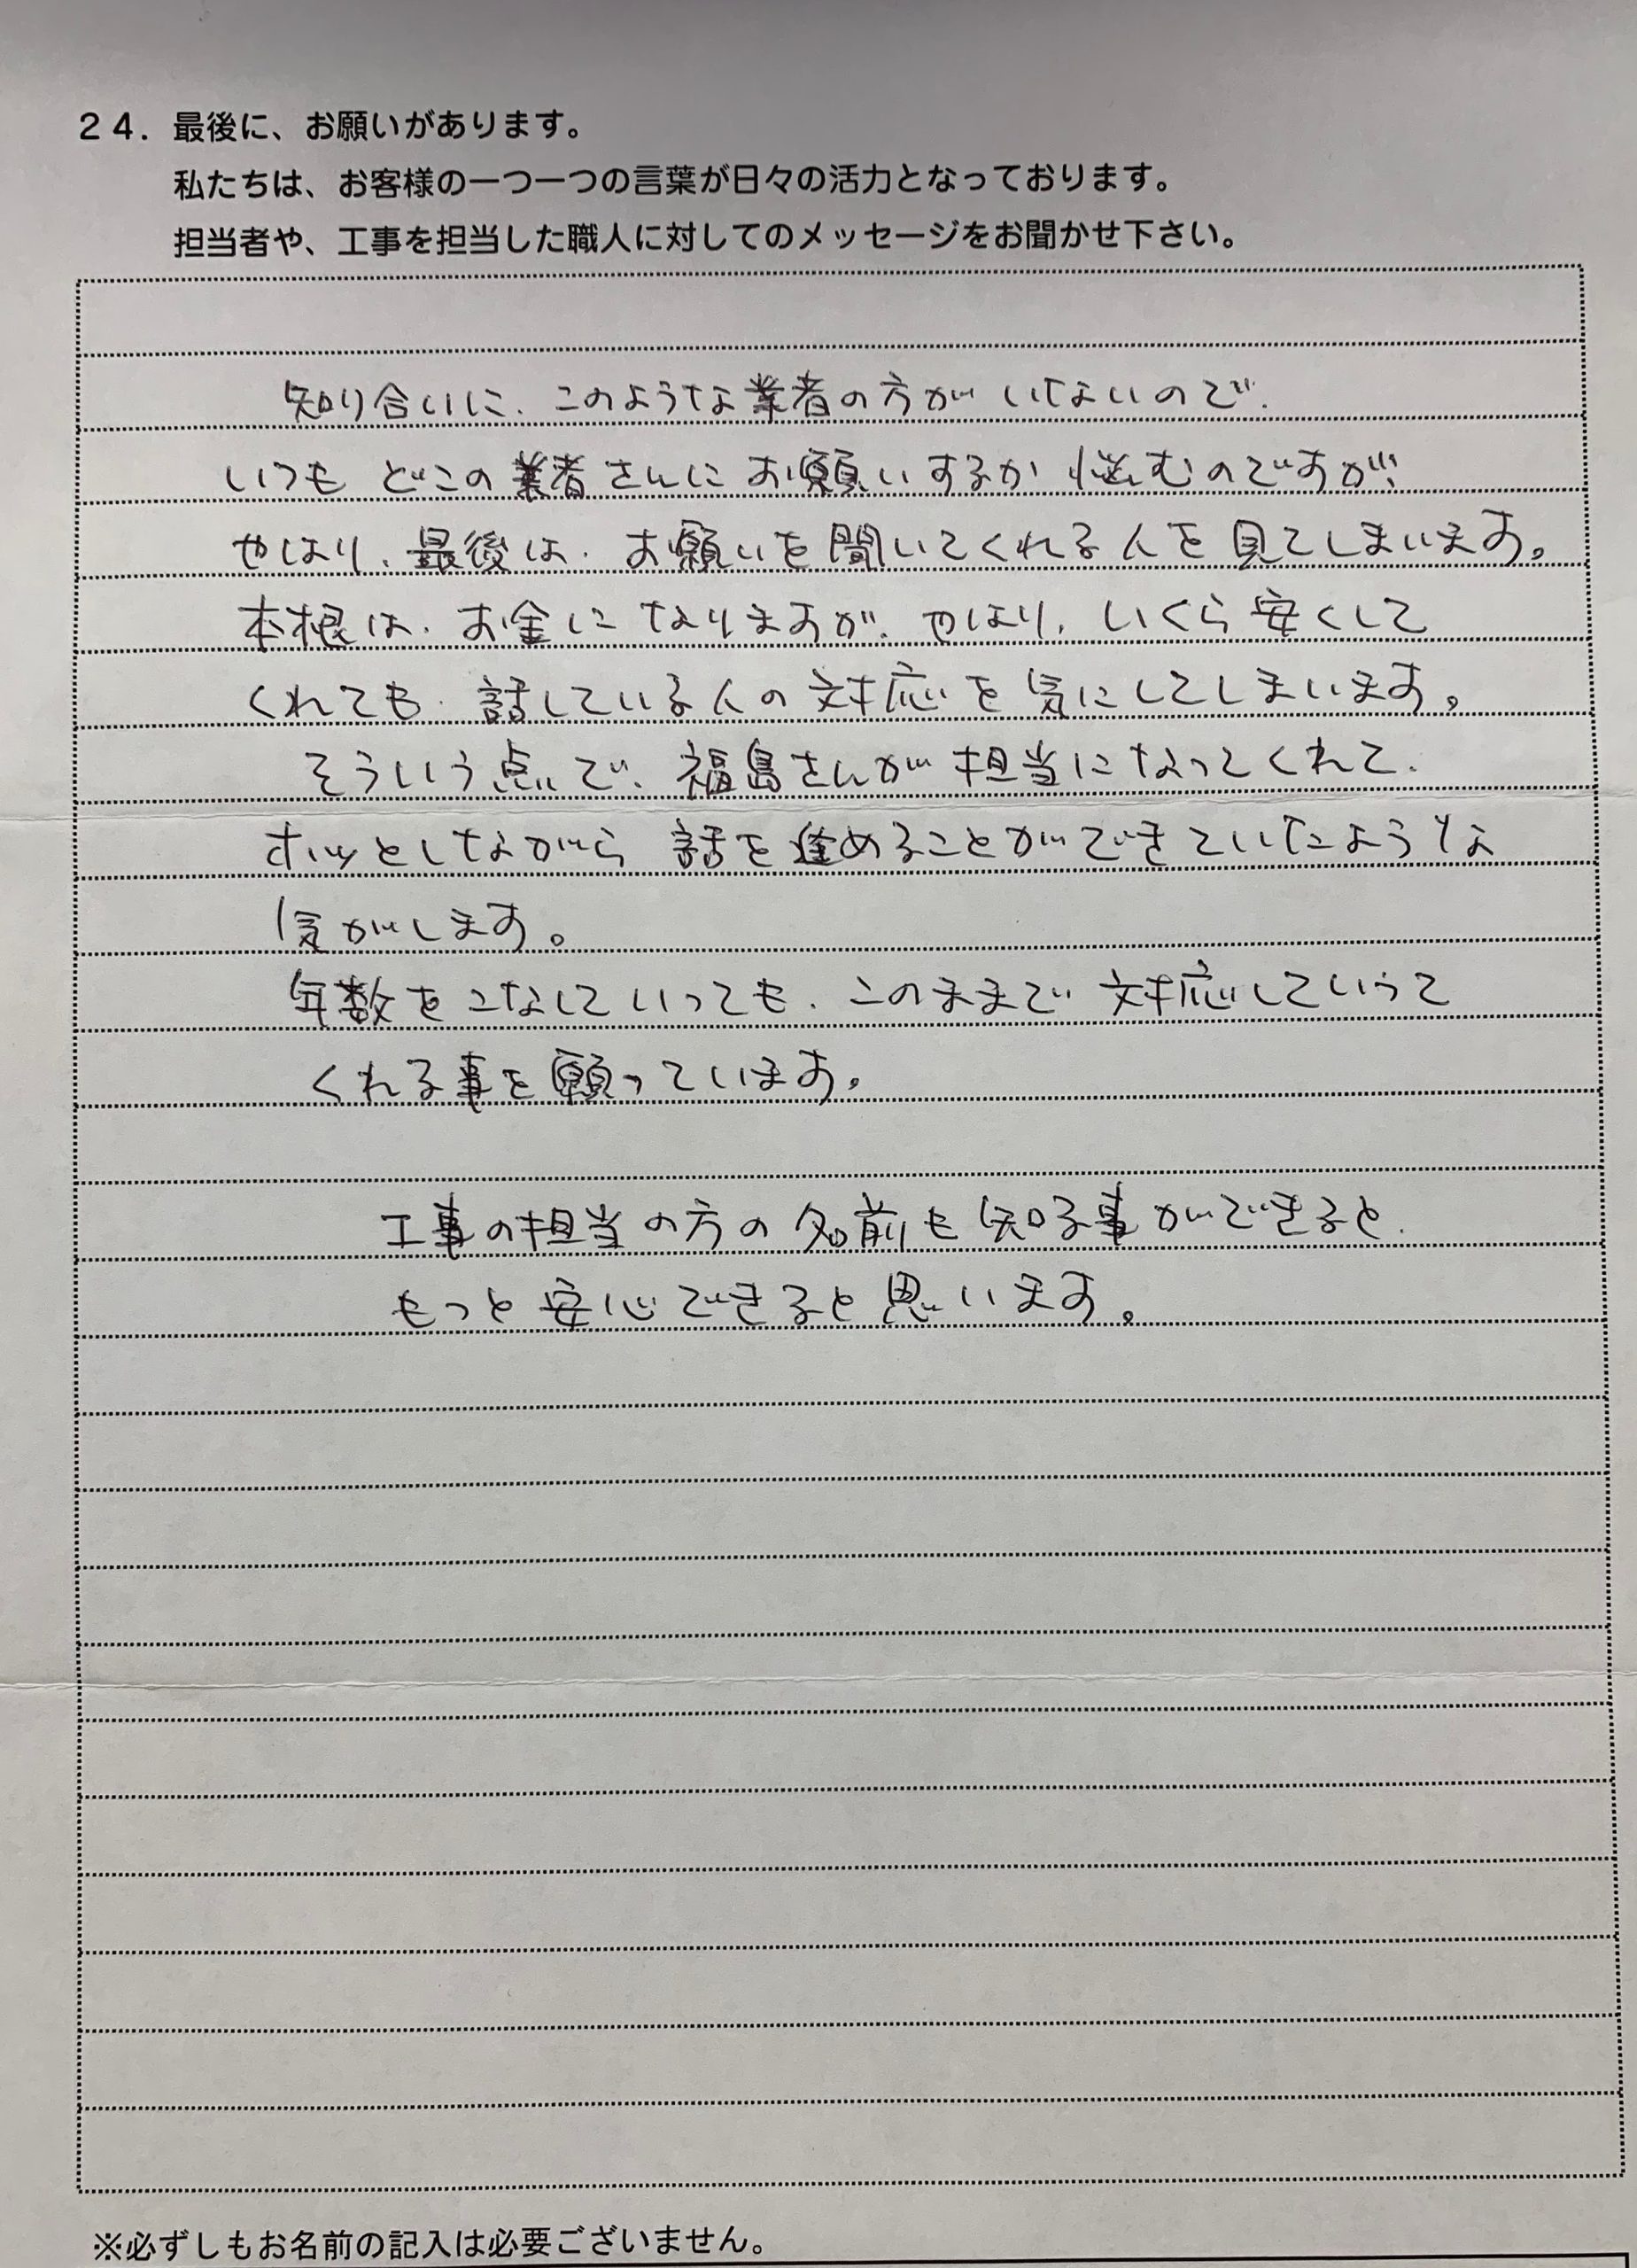 ２４．最後に、お願いがあります。
私たちは、お客様の一つ一つの言葉が日々の活力となっております。
担当者や、工事を担当した職人に対してのメッセージをお聞かせ下さい。
知り合いに、このような業者の方がいないので、
いつも どこの業者さんにお願いするか悩むのですが、
やはり、最後は、お願いを聞いてくれる人を見てしまいます。
本根は、お金になりますが、やはり、いくら安くして
くれても、話している人の対応を気にしてしまいます。
そういう点で、福島さんが担当になってくれて、
ホッとしながら 話を進めることができていたような
気がします。
年数をこなしていっても、このままで対応していって
くれる事を願っています。
工事の担当の方の名前も知る事ができると、
もっと安心できると思います。
※必ずしもお名前の記入は必要ございません。